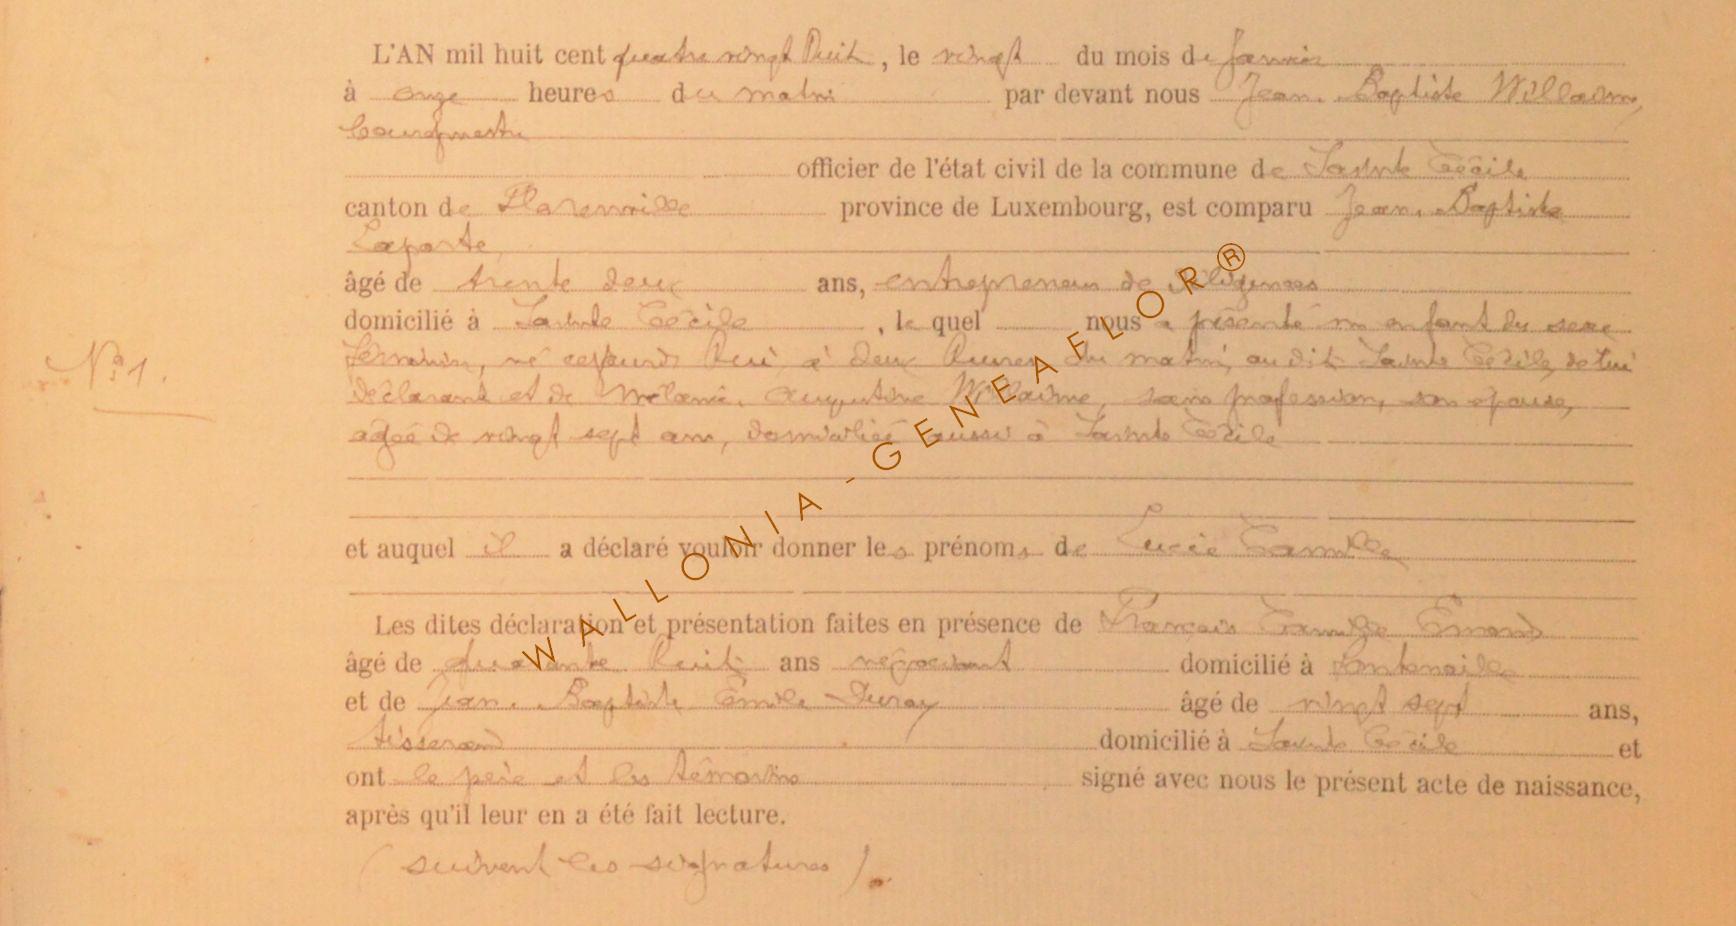 L'AN mil huit cent quatre vingt huit, le vingt du mois de Janvier
à onze heures du matin par devant nous Jean-Baptiste Willaime,
bourgmestre
officier de l'état civil de la commune de Sainte Cécile
canton de Florenville province de Luxembourg, est comparu Jean-Baptiste
Laporte,
âgé de trente deux ans, entrepreneur de diligences
domicilié à Sainte Cécile, le quel nous a présenté un enfant du sexe
N° 1.
féminin, né cejourd'hui à deux heures du matin, audit Sainte Cécile, de lui
déclarant et de Mélanie-Augustine Willaime, sans profession, son épouse,
agée de vingt sept ans, domiciliée aussi à Sainte Cécile
et auquel il a déclaré vouloir donner les prénoms de Lucie Camille
Les dites déclaration et présentation faites en présence de François Camille
âgé de quarante huit ans négociant domicilié à Fontenoille
et de Jean-Baptiste Emile Duray âgé de vingt sept ans,
tisserand domicilié à Sainte Cécile et
ont le père et les témoins signé avec nous le présent acte de naissance,
après qu'il leur en a été fait lecture.
(suivent les signatures).
WALLONIA-GENEAFLOR®